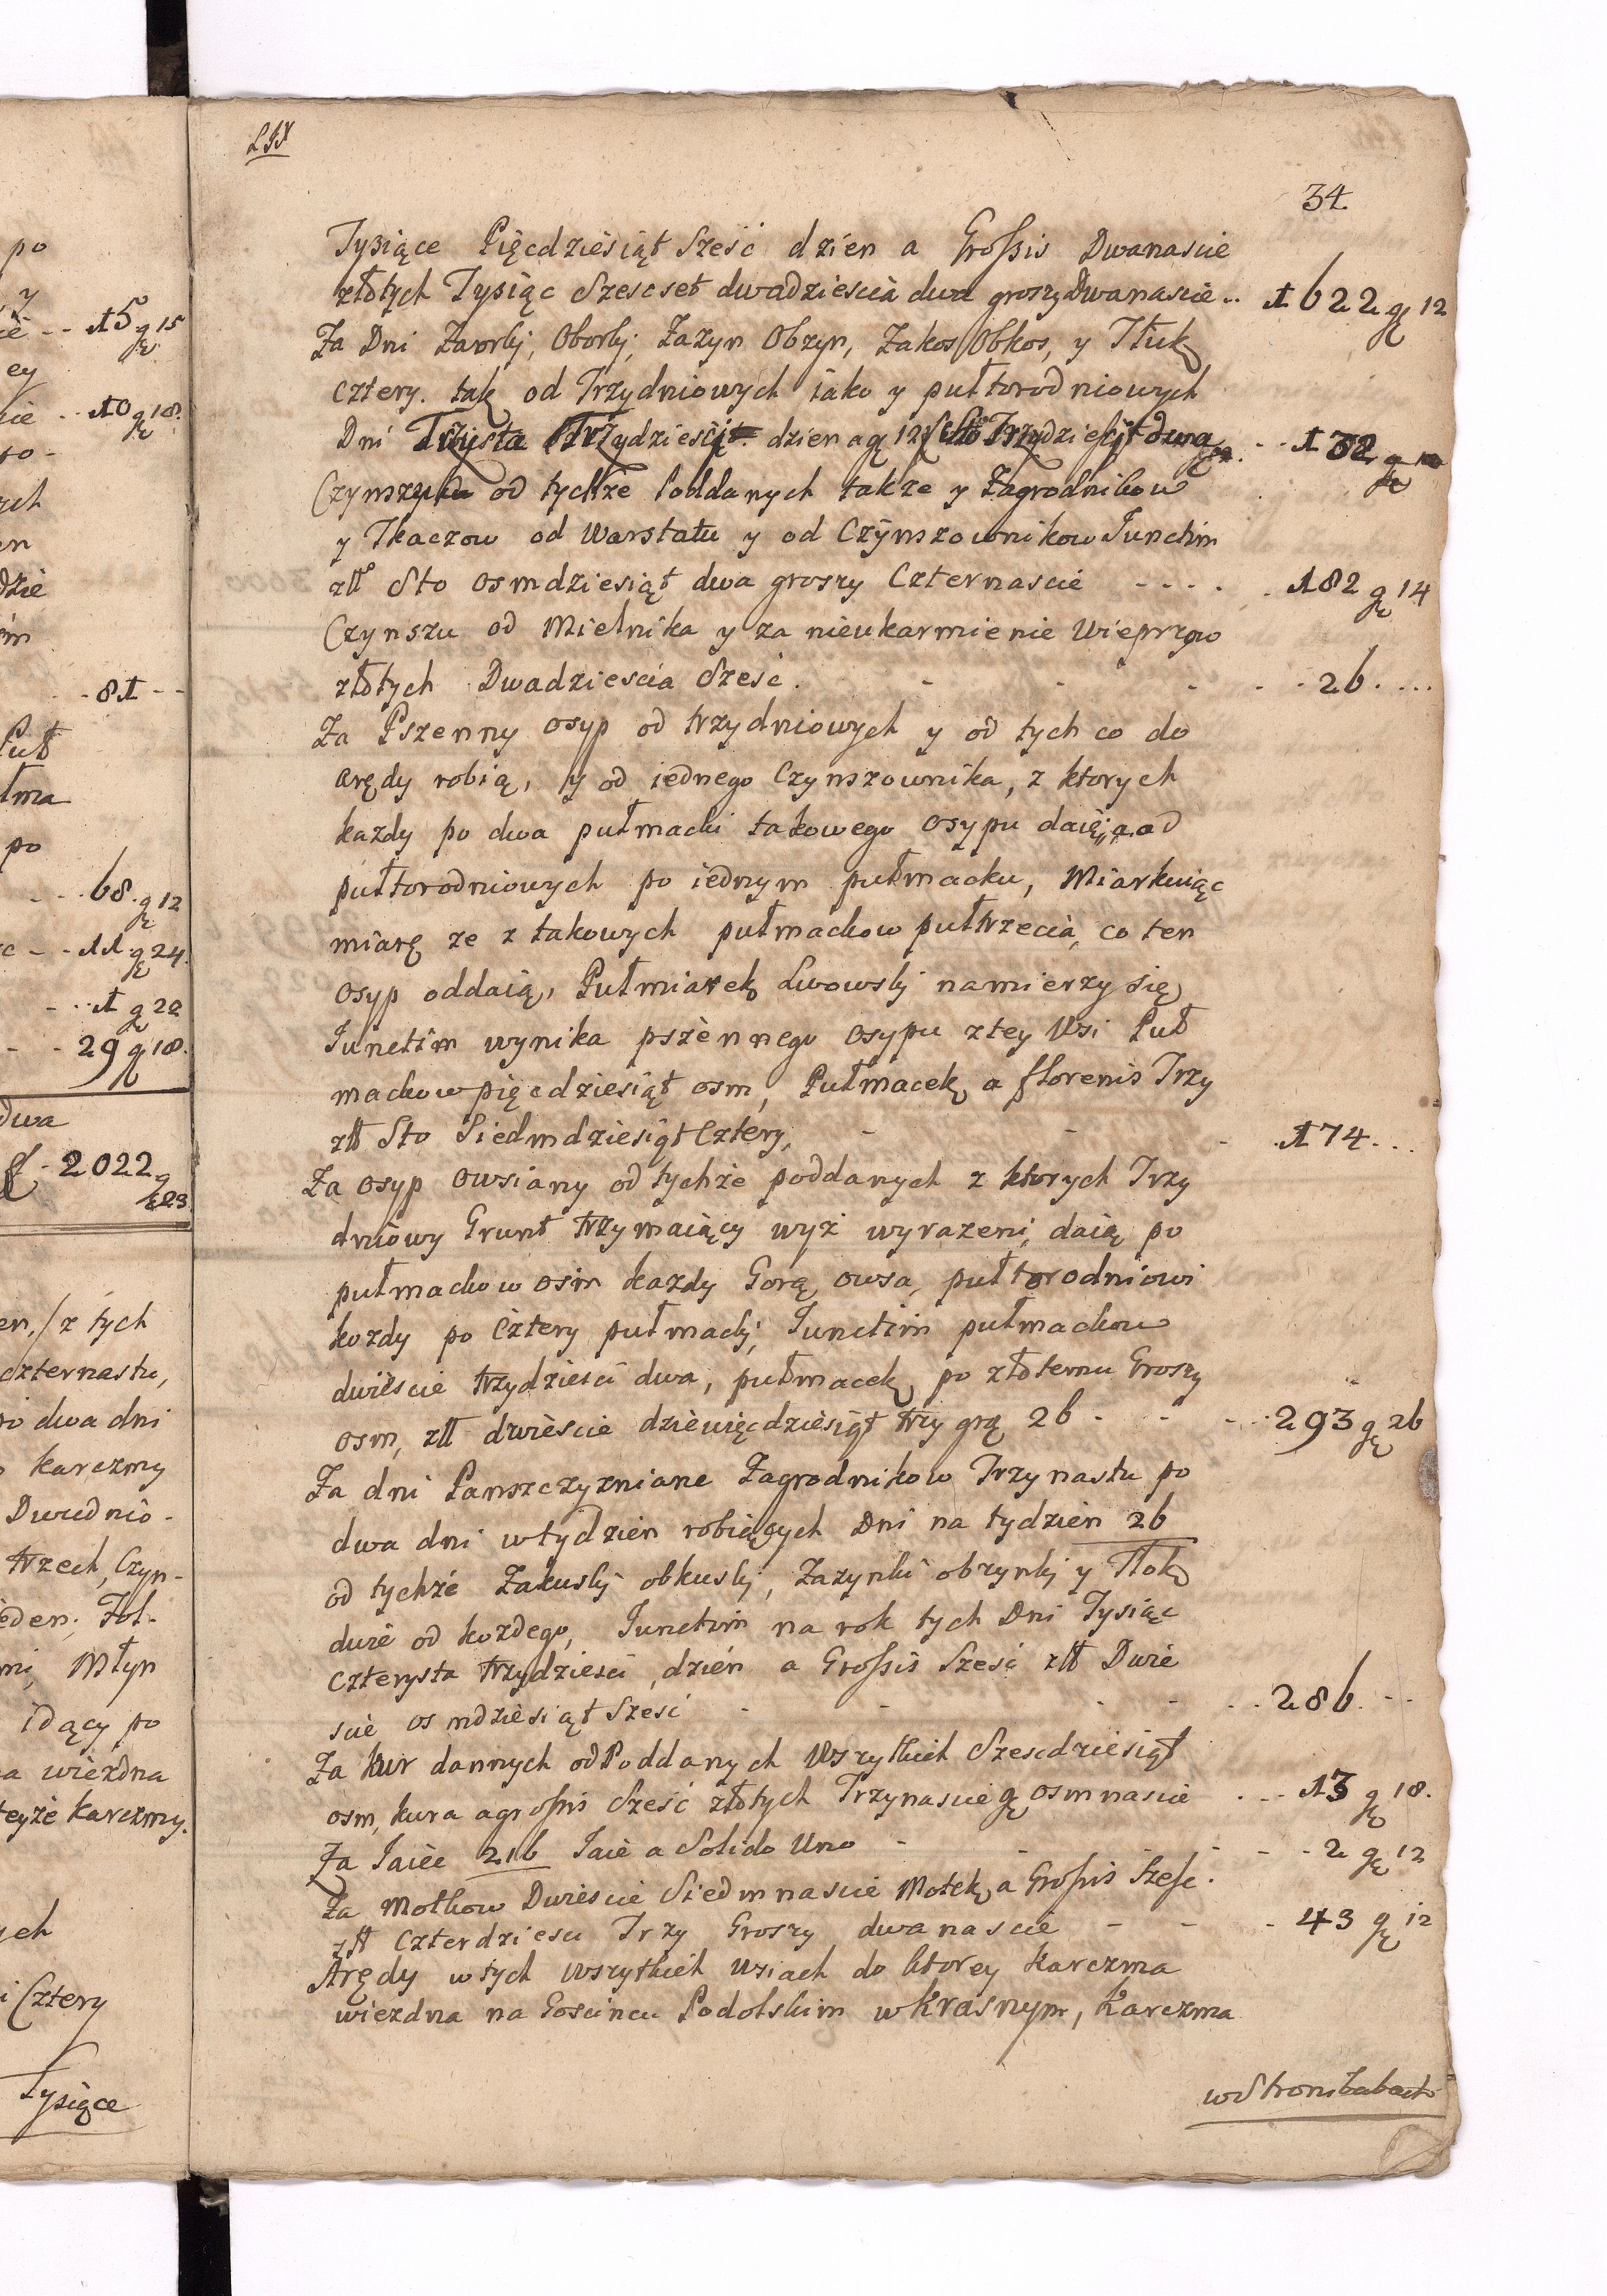 po
y
ie - - 15 gr 15
ey
ie - - 10 gr 18.
to -
ych
en
dzie
ìm
- 81 - -
Puł
łma
po
- - . 68. gr 12
c - - 11 gr 24.
- .. 1 gr 22
- - 29 gr 18.
dwa
fl - 2022 gr 23
en, / z tych
czternastu,
po dwa dni
o karczmy
Dwudnio-
trzech, Czyn-
ieden, Fol-
mi, Młyn
idący po
a wiezdna
teyże karczmy.
ych
i Cztery
Tysiące
LIX
34.
Tysiące Pięcdziesiąt Szesć dzien a Grossis Dwanascie
złotych Tysiąc Szescset dwadziescia dwa groszy Dwanascie .. 1622 gr 12
Za Dni Zaorki, Oborki, Zazyn Obzyn, Zakos Obkos, y Tłuk
cztery. tak od Trzydniowych iako y pułtorodniowych
Dni Trzysta Trzydziesci dzien a gr 12 Sto Trzydziesci dwa - - 132 gr
Czynszu od tychże Poddanych także y Zagrodnikow
y Tkaczow od Warstatu y od Czynszownikow Junctim
złł Sto Osmdziesiąt dwa groszy Czternascie - - - . . 182 gr 14
Czynszu od Mielnika y za nieukarmienie Wieprzow
złotych Dwadziescia Szesć . - - - . 26 . ...
Za Pszenny Osyp od trzydniowych y od tych co do
arędy robią, y od iednego Czynszownika, z ktorych
kazdy po dwa pułmacki takowego Osypu daię, a od
pułtorodniowych po iednym pułmacku, Miarkuiąc
miarę ze z takowych pułmackow pułtrzecia, co ten
Osyp oddaią, Pułmiarek Lwowski namierzy się
Junctim wynika pszennego Osypu z tey Wsi Puł
mackow pięcdziesiąt osm, Pułmacek a florenis Trzy
złł Sto Siedmdziesiąt Cztery, - - - . 174 . . .
Za Osyp Owsiany od tychże poddanych z ktorych Trzy
dniowy Grunt trzymaiący wyż wyrazeni, daią po
pułmackow osim kazdy Gorą owsa, pułtorodniowi
kozdy po cztery pułmacki, Junctim pułmackow
dwiescie trzydziesci dwa, pułmacek po złotemu Groszy
osm, złł dwiescie dziewięcdziesiąt trzy grą 26 - - - . 293 gr 26
Za dni Panszczyzniane Zagrodnikow Trzynastu po
dwa dni w tydzien robiących Dni na tydzien 26
od tychże Zakuski obkuski, Zazynki obzynki y Tłok
dwie od kozdego, Junctim na rok tych Dni Tysiąc
czterysta trzydziesci, dzień a Grossis Szesć złł Dwie
scie osmdziesiąt Szesć - - - - . . 286. - -
Za kur dannych od Poddanych Wszytkich Szescdziesiąt
osm, kura a grossis Szesć złotych Trzynascie gr osmnascie . - - 13 gr 18.
Za Iaiec 216 Iaie a Solido Uno - - - - . 2 gr 12
Za Motkow Dwiescie Siedmnascie Motek a Grossis Szesc.
złł Czterdziesci Trzy Groszy dwanascie - - - 43 gr 12
Arędy w tych wszytkich wsiach do ktorey karczma
wiezdna na Goscincu Podolskim w Krasnym, Karczma
w Stronibabach